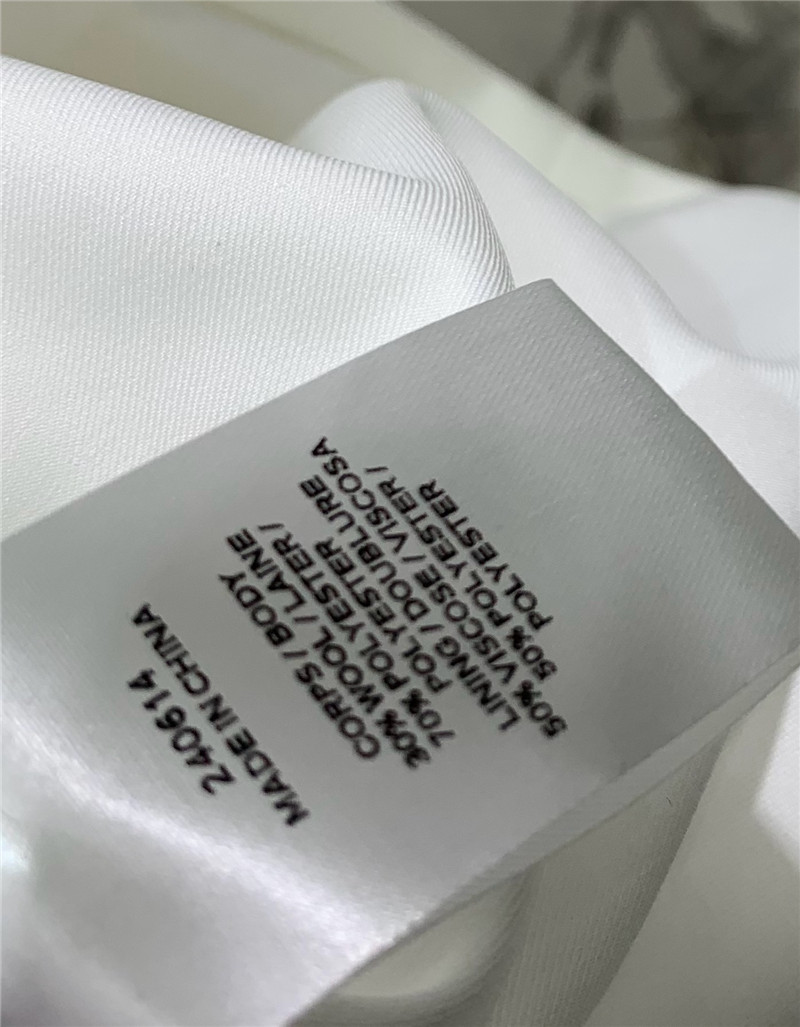 240614
MADE IN CHINA
CORPS / BODY
30% WOOL / LAINE
70% POLYESTER /
POLYESTER
LINING / DOUBLURE
50% VISCOSE / VISCOSA
50% POLYESTER /
POLYESTER